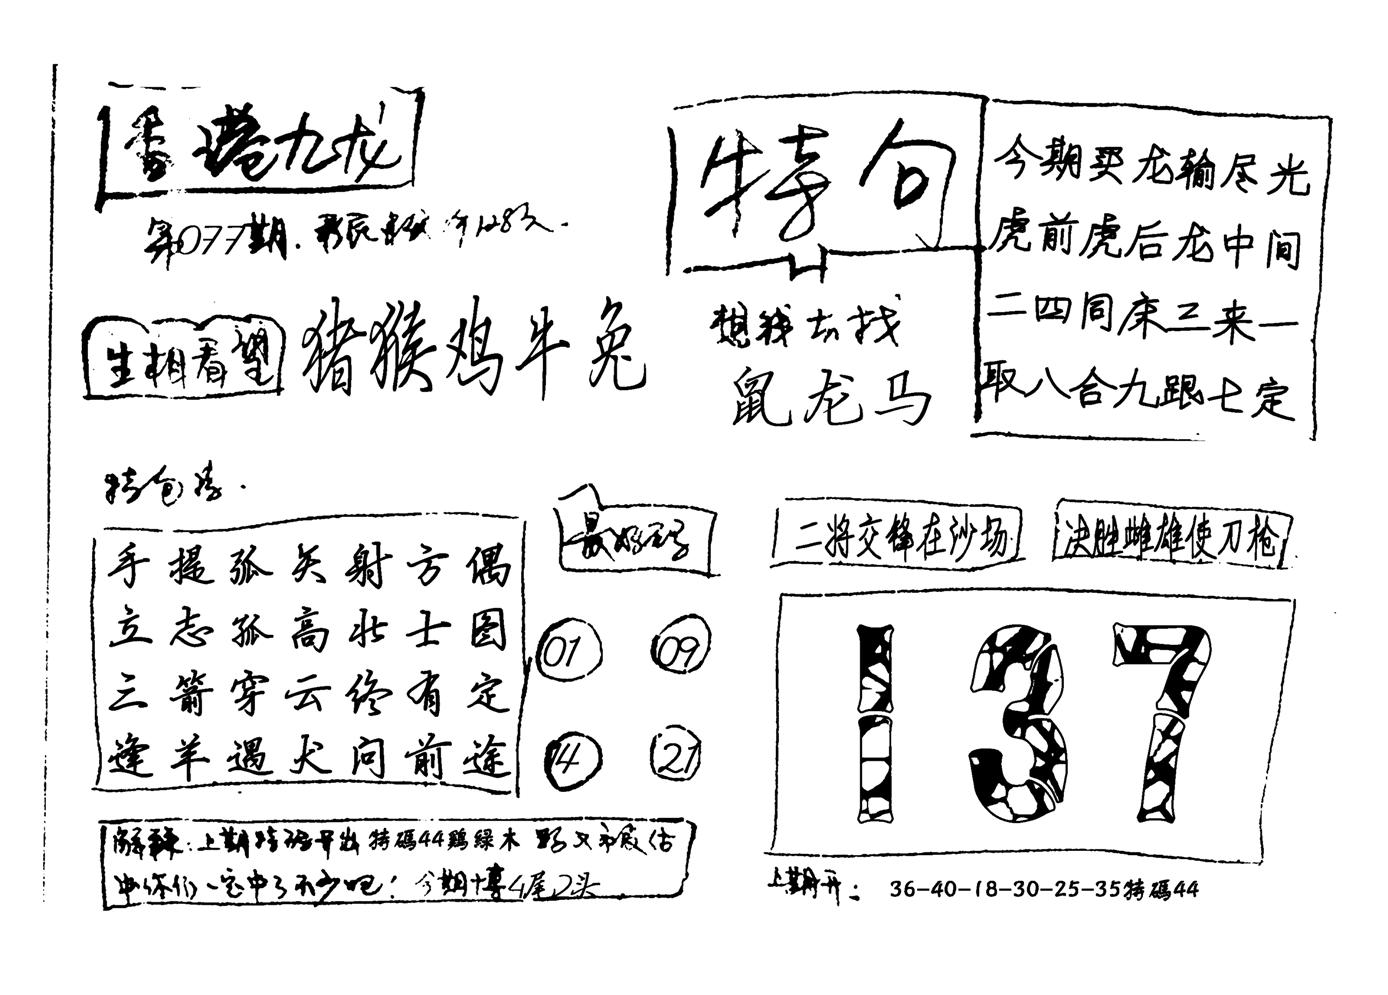 香港九龙
第077期.
生相看望
猪猴鸡牛兔
特句
想钱去找
鼠龙马
今期买龙输尽光
虎前虎后龙中间
二四同床三来一
取八合九跟七定
特包诗.
手提弧矢射方偶
立志孤高壮士图
三箭穿云终有定
逢羊遇犬问前途
最好买号
01
09
14
21
二将交锋在沙场
决胜雌雄使刀枪
137
解释:上期特码开出特碼44鷄綠木
中你们一定中了不少吧!今期十尊4尾2头
上期开:36-40-18-30-25-35特碼44